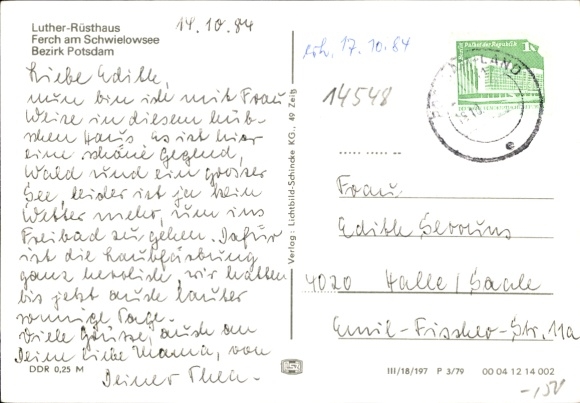 Luther-Rüsthaus
Ferch am Schwielowsee
Bezirk Potsdam
14.10.84
Liebe Edith,
nun bin ich mit Frau
Weise in diesem hüb-
schen Haus. Es ist hier
eine schöne Gegend,
Wald und ein grosser
See, leider ist ja kein
Wetter mehr, um ins
Freibad zu gehen. Dafür
ist die Laubfärbung
ganz herrlich, wir hatten
bis jetzt auch lauter
sonnige Tage.
Viele Grüsse, auch an
Deine liebe Mama, von
Deiner Thea.
DDR 0,25 M
Verlag: Lichtbild-Schincke KG., 49 Zeitz
erh. 17.10.84
14548
Palast der Republik
Frau
Edith
4020 Halle/Saale
Emil-Fischer-Str. 11a
III/18/197 P 3/79 00 04 12 14 002
-,50